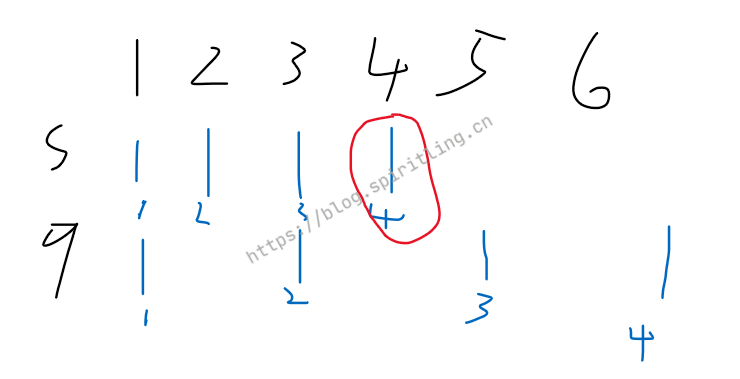 1 2 3 4 5 6
S
1 2 3 4
9
1 2 3
4
https://blog.spiritling.cn